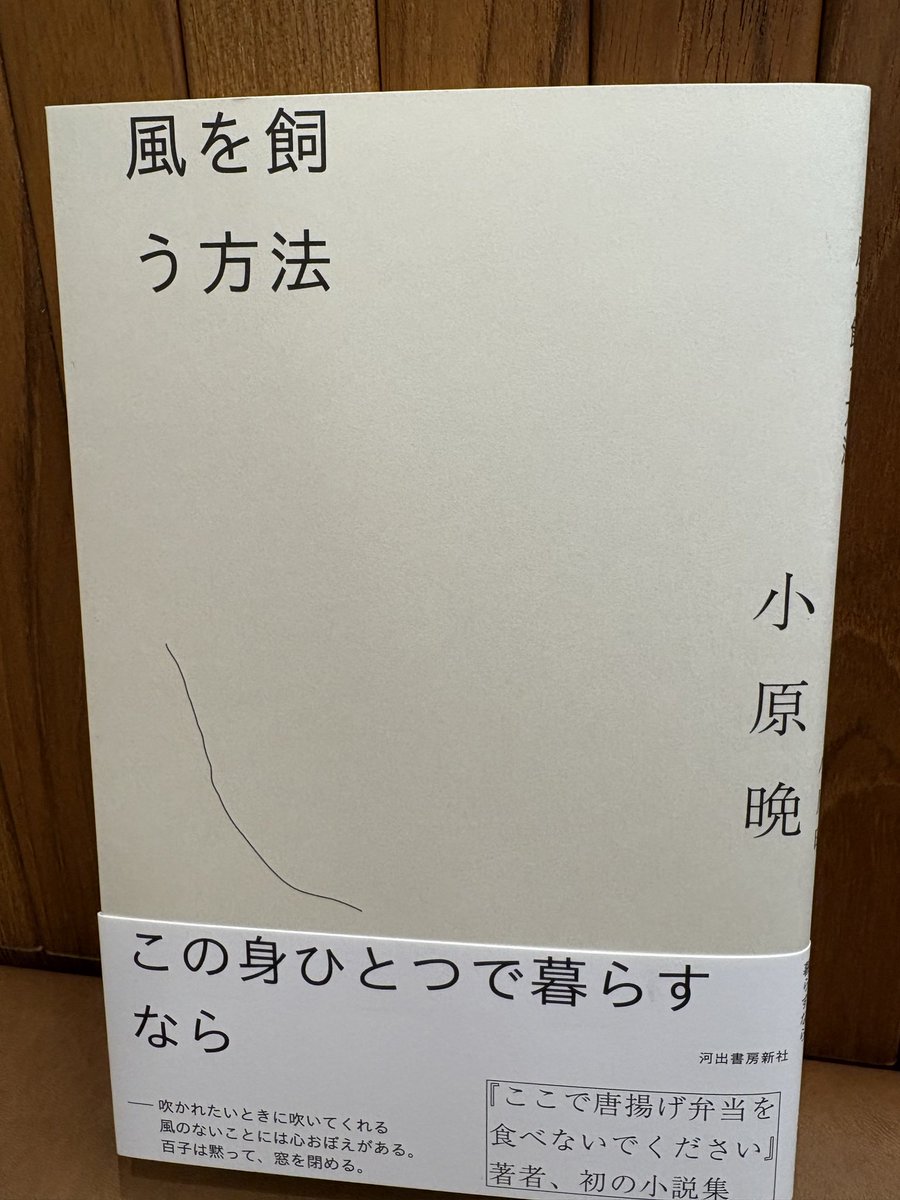 風を飼
う方法
小原晩
この身ひとつで暮らす
なら
河出書房新社
── 吹かれたいときに吹いてくれる
風のないことには心おぼえがある。
百子は黙って、窓を閉める。
『ここで唐揚げ弁当を
食べないでください』
著者、初の小説集